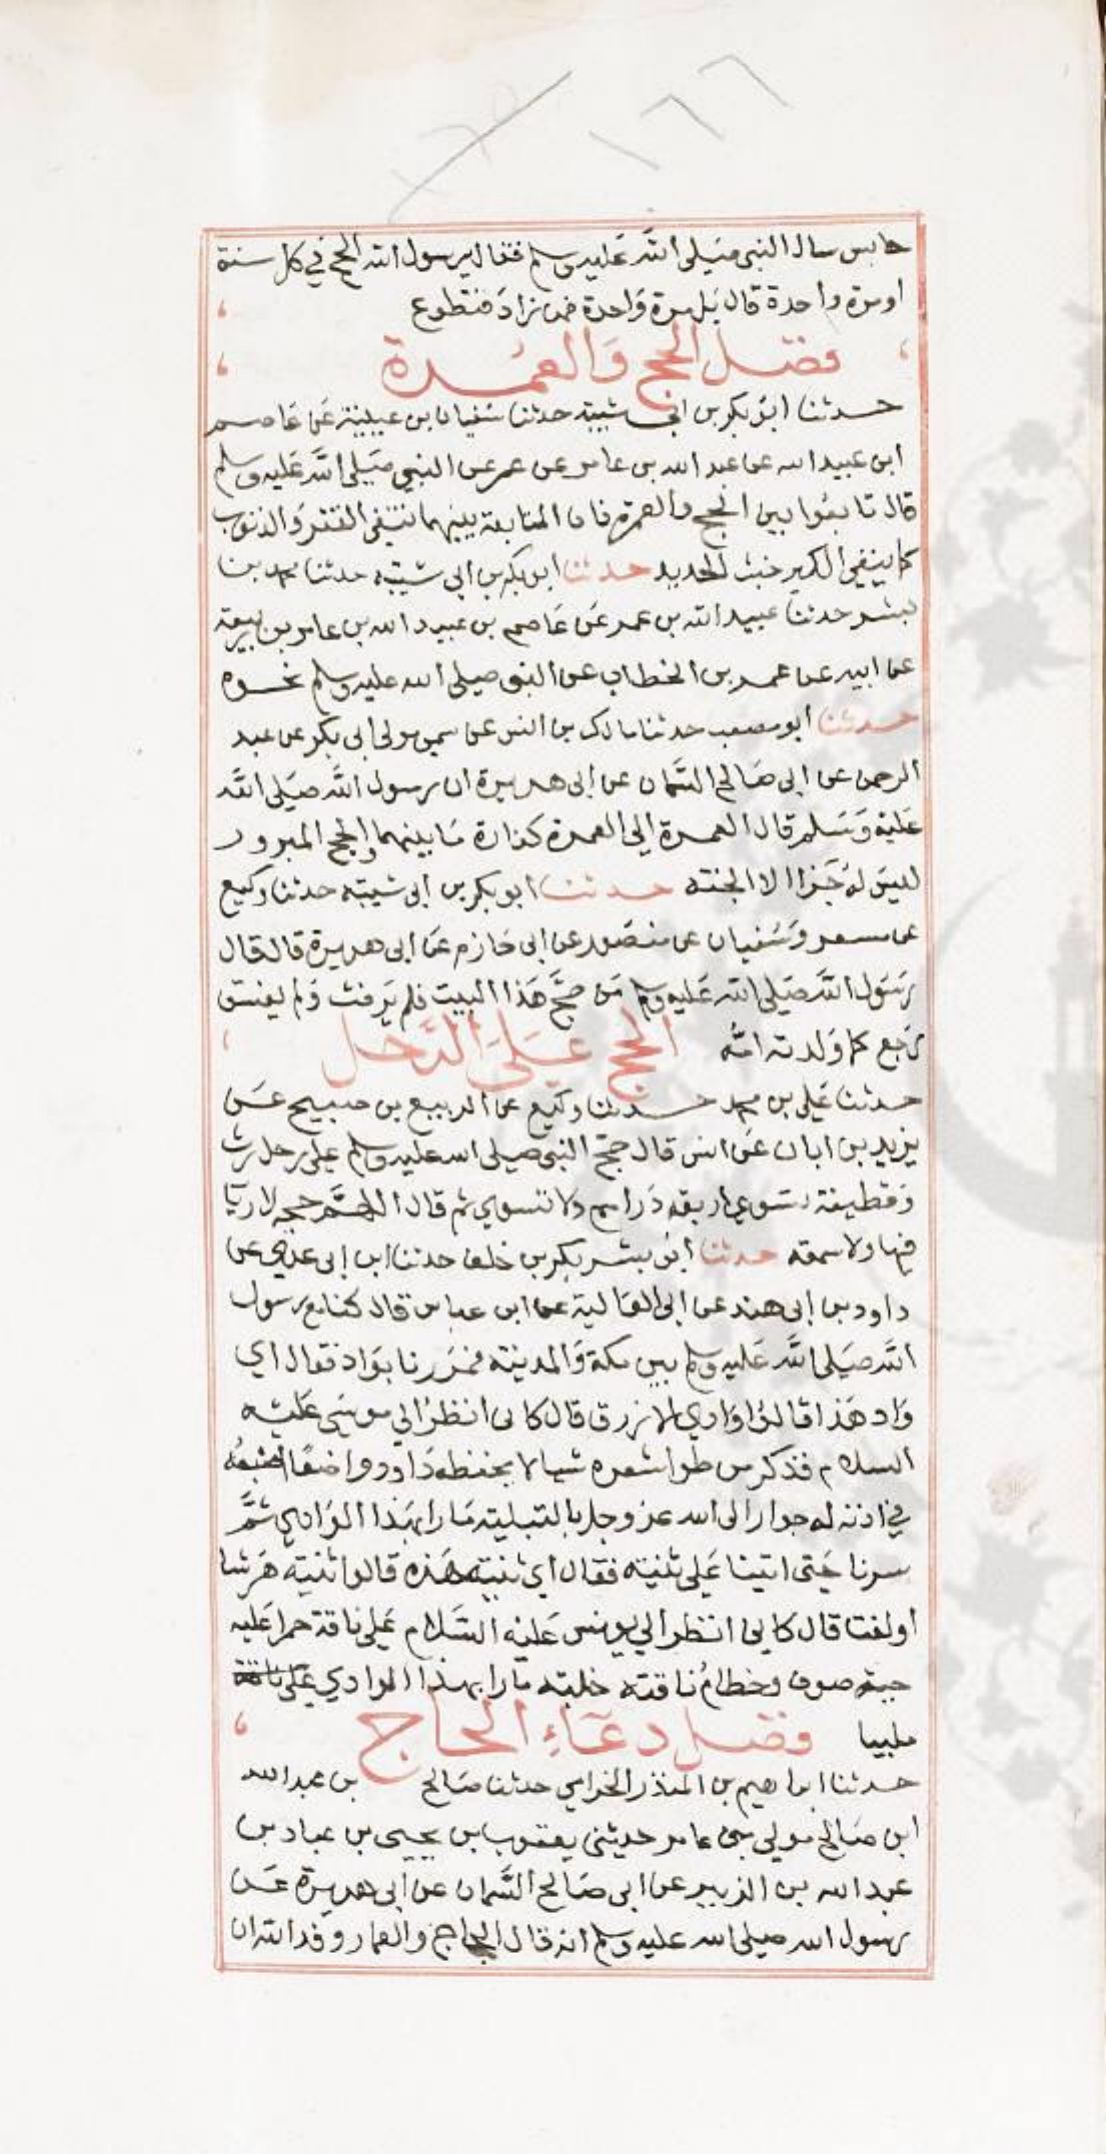 ١٦٦
حابس سال النبي صلى الله عليه وسلم فقال يرسول الله الحج في كل سنة
او مرة واحدة قال بل مرة واحدة فمن زاد فتطوع
فضل الحج والعمرة
حدثنا ابو بكر بن ابي شيبة حدثنا سفيان بن عيينة عن عاصم
ابن عبيد الله عن عبد الله بن عامر عن عمر عن النبي صلى الله عليه وسلم
قال تابعوا بين الحج والعمرة فان المتابعة بينهما تنفي الفقر والذنوب
كما ينفي الكير خبث الحديد حدثنا ابو بكر بن ابي شيبة حدثنا محمد بن
بشر حدثنا عبيد الله بن عمر عن عاصم بن عبيد الله بن عامر بن ربيعة
عن ابيه عن عمر بن الخطاب عن النبي صلى الله عليه وسلم نحوه
حدثنا ابو مصعب حدثنا مالك بن انس عن سمي مولى ابي بكر عن عبد
الرحمن عن ابي صالح السمان عن ابي هريرة ان رسول الله صلى الله
عليه وسلم قال العمرة الى العمرة كفارة ما بينهما والحج المبرور
ليس له جزا الا الجنة حدثنا ابو بكر بن ابي شيبة حدثنا وكيع
عن مسعر وسفيان عن منصور عن ابي حازم عن ابي هريرة قال قال
رسول الله صلى الله عليه وسلم من حج هذا البيت فلم يرفث ولم يفسق
رجع كما ولدته امه الحج على الرحل
حدثنا علي بن محمد حدثنا وكيع عن الربيع بن صبيح عن
يزيد بن ابان عن انس قال حج النبي صلى الله عليه وسلم على رحل رث
وقطيفة تسوي اربعة دراهم ولا تسوي ثم قال اللهم حجة لا ريا
فيها ولا سمعة حدثنا ابو بشر بكر بن خلف حدثنا ابن ابي عدي عن
داود بن ابي هند عن ابي العالية عن ابن عباس قال كنا مع رسول
الله صلى الله عليه وسلم بين مكة والمدينة فمررنا بواد فقال اي
واد هذا قالوا وادي الازرق قال كاني انظر الي موسى عليه
السلام فذكر من طول شعره شيا لا يحفظه داود واضعا اصبعه
في اذنه له جوار الى الله عز وجل بالتلبية مارا بهذا الوادي ثم
سرنا حتى اتينا على ثنية فقال اي ثنية هذه قالوا ثنية هرشا
او لفت قال كاني انظر الي يونس عليه السلام على ناقة حمرا عليه
جبة صوف وخطام ناقته خلبة مارا بهذا الوادي
ملبيا فضل دعاء الحاج
حدثنا ابراهيم بن المنذر الحزامي حدثنا صالح بن عبد الله
ابن صالح مولى بني عامر حديثني يعقوب بن يحيى بن عباد بن
عبد الله بن الزبير عن ابي صالح السمان عن ابي هريرة عن
رسول الله صلى الله عليه وسلم انه قال الحاج والعمار وفد الله ان